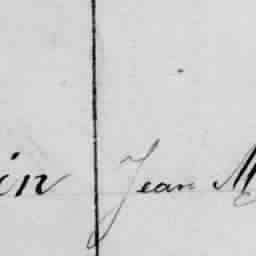 in Jean M